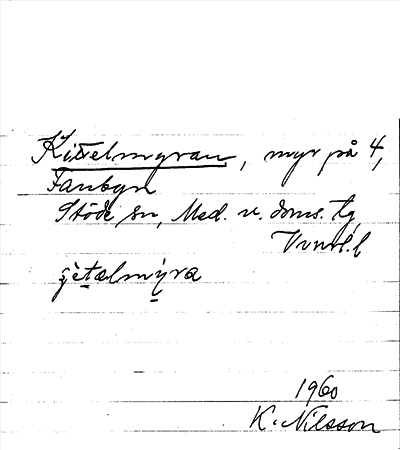 Kittelmyran, myr på 4,
Fanbyn
Stöde sn, Med. v. doms. tg,
Vnrl. l
1960
K. Nilsson